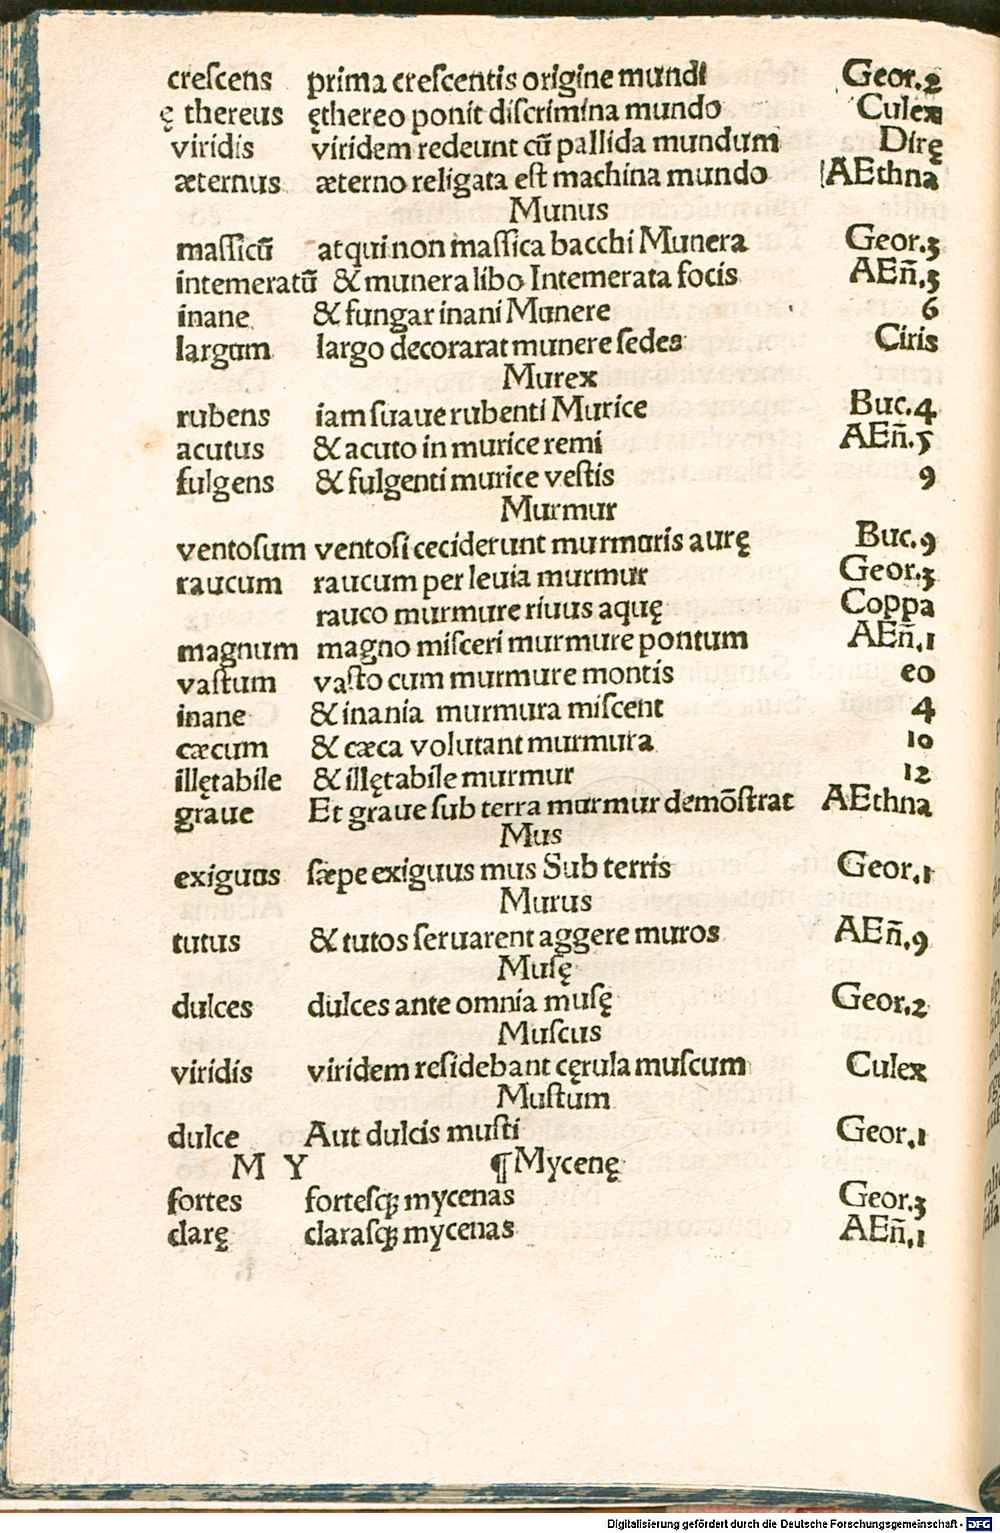 creſcens prima creſcentis origine mundi Geor.2
ę thereus ęthereo ponit diſcrimina mundo Culex
viridis viridem redeunt cū pallida mundum Dirę
æternus æterno religata eſt machina mundo AEthna
Munus
maſſicū at qui non maſſica bacchi Munera Geor.3
intemeratū & munera libo Intemerata focis AEñ.3
inane & fungar inani Munere 6
largum largo decorarat munere ſedes Ciris
Murex
rubens iam ſuaue rubenti Murice Buc.4
acutus & acuto in murice remi AEñ.5
fulgens & fulgenti murice veſtis 9
Murmur
ventoſum ventoſi ceciderunt murmuris aurę Buc.9
raucum raucum per leuia murmur Geor.3
rauco murmure riuus aquę Coppa
magnum magno miſceri murmure pontum AEñ.1
vaſtum vaſto cum murmure montis eo
inane & inania murmura miſcent 4
cæcum & cæca volutant murmura 10
illętabile & illętabile murmur 12
graue Et graue ſub terra murmur demōſtrat AEthna
Mus
exiguus ſæpe exiguus mus Sub terris Geor.1
Murus
tutus & tutos ſeruarent aggere muros AEñ.9
Muſę
dulces dulces ante omnia muſę Geor.2
Muſcus
viridis viridem reſidebant cęrula muſcum Culex
Muſtum
dulce Aut dulcis muſti Geor.1
M Y ¶Mycenę
fortes forteſqꝫ mycenas Geor.3
clarę claraſqꝫ mycenas AEñ.1
Digitalisierung gefördert durch die Deutsche Forschungsgemeinschaft - DFG